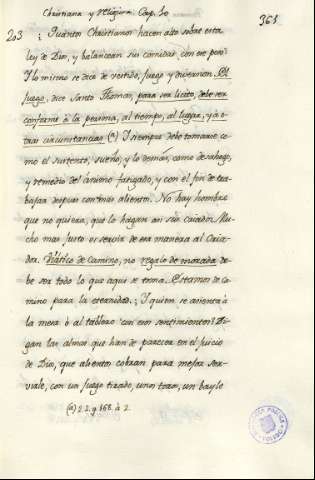 Christiana y religiosa. Cap. 10
361
203
¿Quántos Christianos hacen alto sobre esta
ley de Dios, y balancean sus comidas con ese peso?
Y lo mismo se dice de vestido, juego y diversion. El
juego, dice Santo Thomas, para ser licito, debe ser
conforme à la persona, al tiempo, al lugar, y à o-
tras circunstancias (a) Y siempre debe tomarse co-
mo el sustento, sueño, y lo demás, como desahogo,
y remedio del animo fatigado, y con el fin de tra-
bajar despues con mas aliento. No hay hombre
que no quiera, que lo hagan asi sus criados. Mu-
cho mas justo es servir de esa manera al Cria-
dor. Viático de camino, no regalo de morada de-
be ser todo lo que aqui se toma. Estamos de ca-
mino para la eternidad. ¿Y quien se asienta à
la mesa ò al tablero con esos sentimientos? Di-
gan las almas que han de parecer en el juicio
de Dios, que alientos cobran para mejor ser-
virle, con un juego tirado, unos toros, un bayle
(a) 2.2. q. 168. à 2.